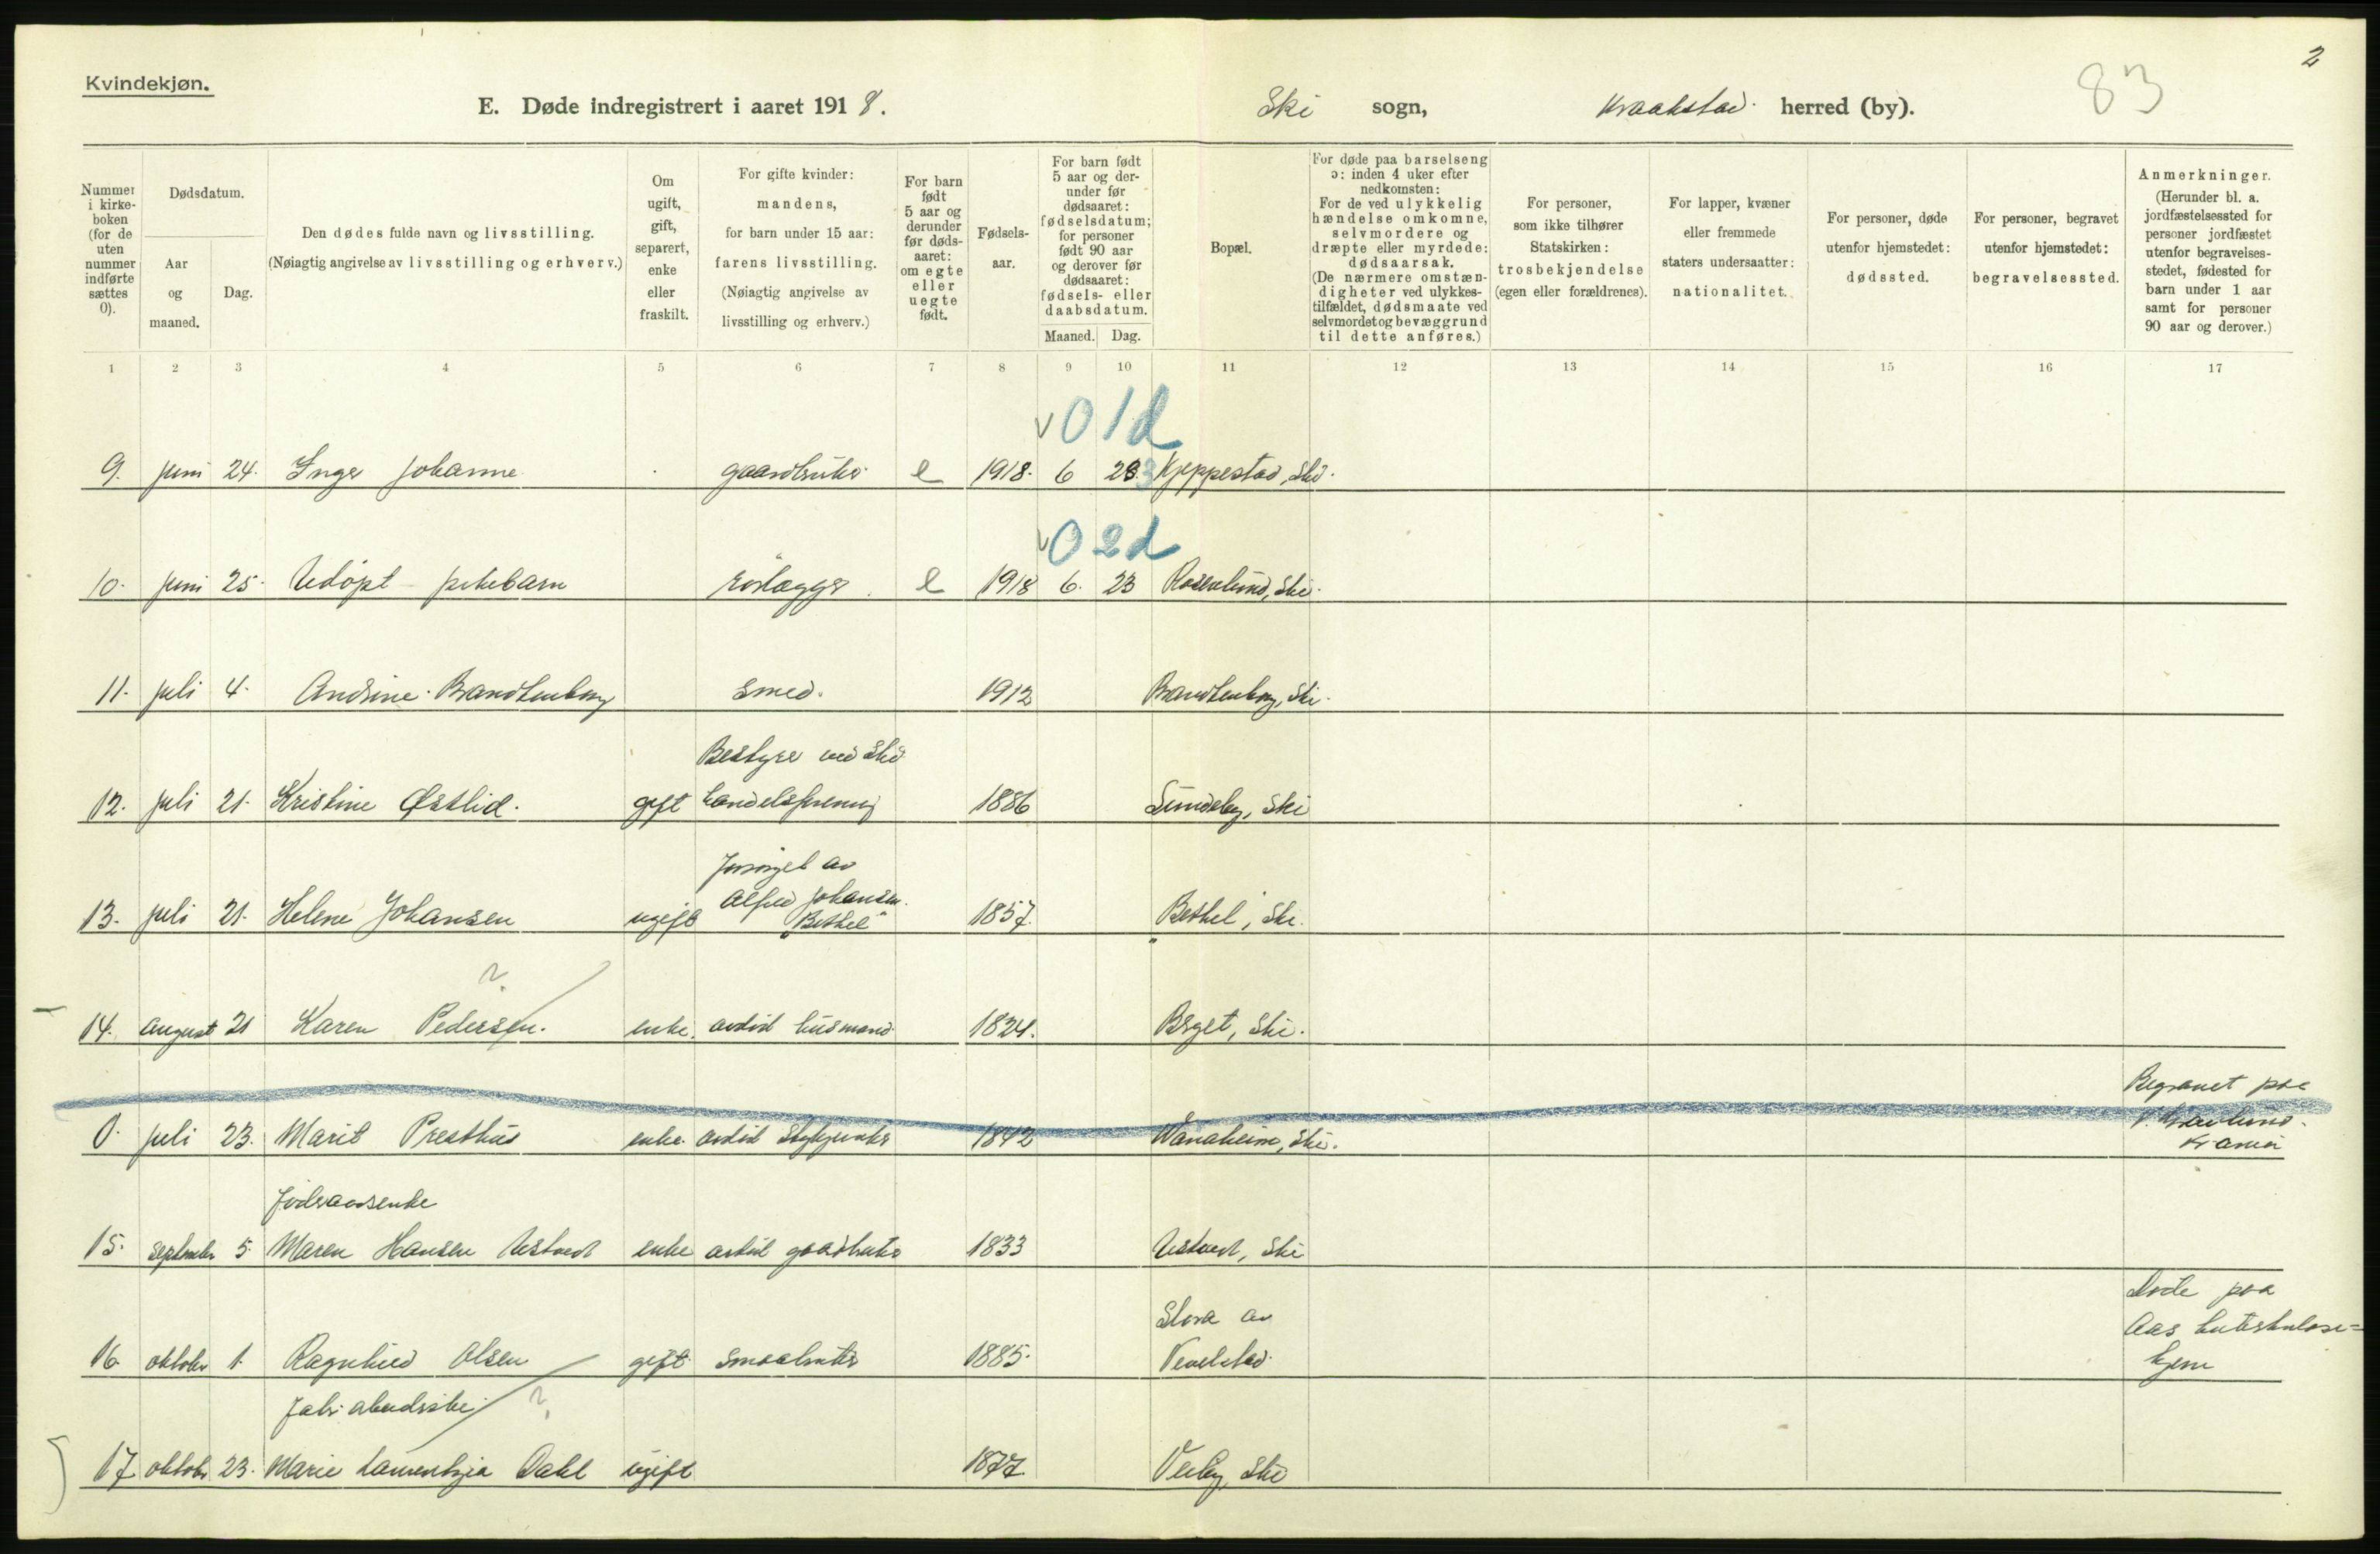 2
Kvindekjøn.
83
E. Døde indregistrert i aaret 1918. Ski sogn, Kraakstad herred (by).
Nummer i kirke-boken (for de uten nummer indførte sættes 0).
Dødsdatum.
Aar og maaned.
Dag.
Den dødes fulde navn og livsstilling.
(Nøiagtig angivelse av livsstilling og erhverv.)
Om ugift, gift, separert, enke eller fraskilt.
For gifte kvinder: mandens, for barn under 15 aar: farens livsstilling.
(Nøiagtig angivelse av livsstilling og erhverv.)
For barn født 5 aar og derunder før døds-aaret: om egte eller uegte født.
Fødsels-aar.
For barn født 5 aar og der-under før dødsaaret: fødselsdatum; for personer født 90 aar og derover før dødsaaret: fødsels- eller daabsdatum.
Maaned. Dag.
Bopæl.
For døde paa barselseng ɔ: inden 4 uker efter nedkomsten:
For de ved ulykkelig hændelse omkomne, selvmordere og dræpte eller myrdede: dødsaarsak.
(De nærmere omstæn-digheter ved ulykkes-tilfældet, dødsmaate ved selvmordet og bevæggrund til dette anføres.)
For personer, som ikke tilhører Statskirken: trosbekjendelse (egen eller forældrenes).
For lapper, kvæner eller fremmede staters undersaatter: nationalitet.
For personer, døde utenfor hjemstedet: dødssted.
For personer, begravet utenfor hjemstedet: begravelsessted.
Anmerkninger.
(Herunder bl. a. jordfæstelsessted for personer jordfæstet utenfor begravelses-stedet, fødested for barn under 1 aar samt for personer 90 aar og derover.)
1 2 3 4 5 6 7 8 9 10 11 12 13 14 15 16 17
0 1 d
9. juni 24. Inger Johanne gaardbruker e 1918. 6 23 Kjeppestad, Ski.
0 2d
10. juni 25. Udøpt pikebarn rørlægger e 1918 6. 23 Rosenlund, Ski.
11. juli 4. Andrine Brandtenborg smed. 1912 Brandtenborg, Ski.
Bestyrer ved Ski
12. juli 21. Kristine Østlid. gift handelsforening 1886 Sundeby, Ski
Forsørget av
Alfred Johansen
13. juli 21. Helene Johansen ugift "Bethel" 1857. "Bethel", Ski.
?
14. august 21 Karen Pedersen. enke. avdød husmand 1824. Berget, Ski.
Begravet paa
V. Gravlund.
Kr.ania
0. juli 23. Marit Presthus enke avdød 1842 Wanaheim, Ski.
Føderaadsenke
15. september 5. Maren Hansen enke avdød gaardbruker 1833 Ski
Døde paa
Aas tuberkulose=
hjem
Slora av
16. oktober 1. Ragnhild Olsen gift smaabruker 1885. Vevelstad.
Fabr. arbeiderske ?
17. oktober 23. Marie Laurentzia Dahl ugift 1877 Veeby, Ski